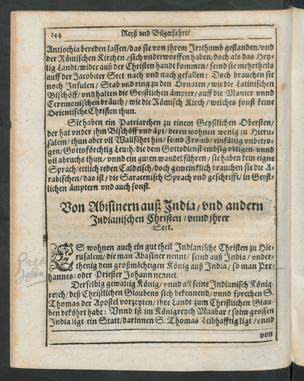 144 Reyß und Bilgerfahrt/
Antiochia bereden lassen/ das sie von ihrem Irrthumb gestanden/ und
der Römischen Kirchen/ sich underworffen haben/ doch als das Hey-
lig Landt/ wider auß der Christen handt kommen/ seind sie mehrtheils
auff der Jacobiter Sect nach und nach gefallen: Doch brauchen sie
noch Insulen/ Stab und ring zu den Ornaten/ wie die Latinischen
Bischöff/ und halten die Geystlichen ämpter/ auff die Manier unnd
Ceremonischen bräuch/ wie die Römisch Kirch/ welches sonst keine
Orientalische Christen thun.
Sie haben ein Patriarchen zu einem Geystlichen Obersten/
der hat under ihm Bischöff und äpt/ deren wohnen wenig zu Hieru-
salem/ thun aber vil Wallfahrt hin/ seind Fromb/ einfältig und ertzo-
gen/ Gottsförchtig Leuth/ die dem Gottsdienst embsig obligen/ unnd
vil abruchs thun/ unnd ein guten wandel führen/ sie haben kein eigne
Sprach/ ettlich reden Caldeisch/ doch gemeinlich brauchen sie die A-
rabischen/ das ist/ die Saracenisch Sprach und geschrifft/ in Geyst-
lichen ämptern und auch sonst.
Von Abissinern auß India/ und andern
Indianischen Christen/ unnd ihrer
Sect.
ES wohnen auch ein gut theil Indianische Christen zu Hie-
rusalem/ die man Abassiner nennt/ seind auß India/ under-
thenig dem großmächtigen König auß India/ so man Pre-
hannes/ oder Priester Johann nennet.
Derselbig gewaltig König/ unnd all seine Indianisch König-
reich/ deß Christlichen Glaubens sich bekennend/ unnd sprechen S.
Thomas der Apostel vorzepten/ ihre Landt zum Christlichen Glau-
ben beköhrt habe: Unnd ist im Königreych Maabar/ so im grossen
India ligt ein Statt/ darinnen S. Thomas Leibhafftig ligt/ unnd
von